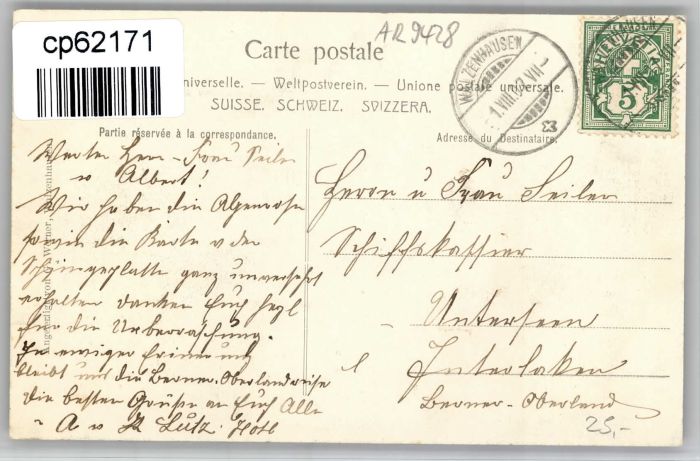 cp62171
AR 9428
Carte postale
niverselle. — Weltpostverein. — Unione postale universale.
SUISSE. SCHWEIZ. SVIZZERA.
WALZENHAUSEN
1.VIII.07.VII
HELVETIA
5
Partie réservée à la correspondance.
Adresse du Destinataire.
Werter Herr - Frau Seiler
u Albert!
Wir haben die Alpenrosen
sowie die Karte v der
Schynigeplatte ganz unversehrt
erhalten danken Euch herzl
für die Ueberraschung.
In ewiger Erinnerung
bleibt uns die Berner-Oberlandreise
die besten Grüsse an Euch Alle
A u Lutz
Herrn u Frau Seiler
Schiffskassier
Unterseen
Interlaken
Berner-Oberland
25,-